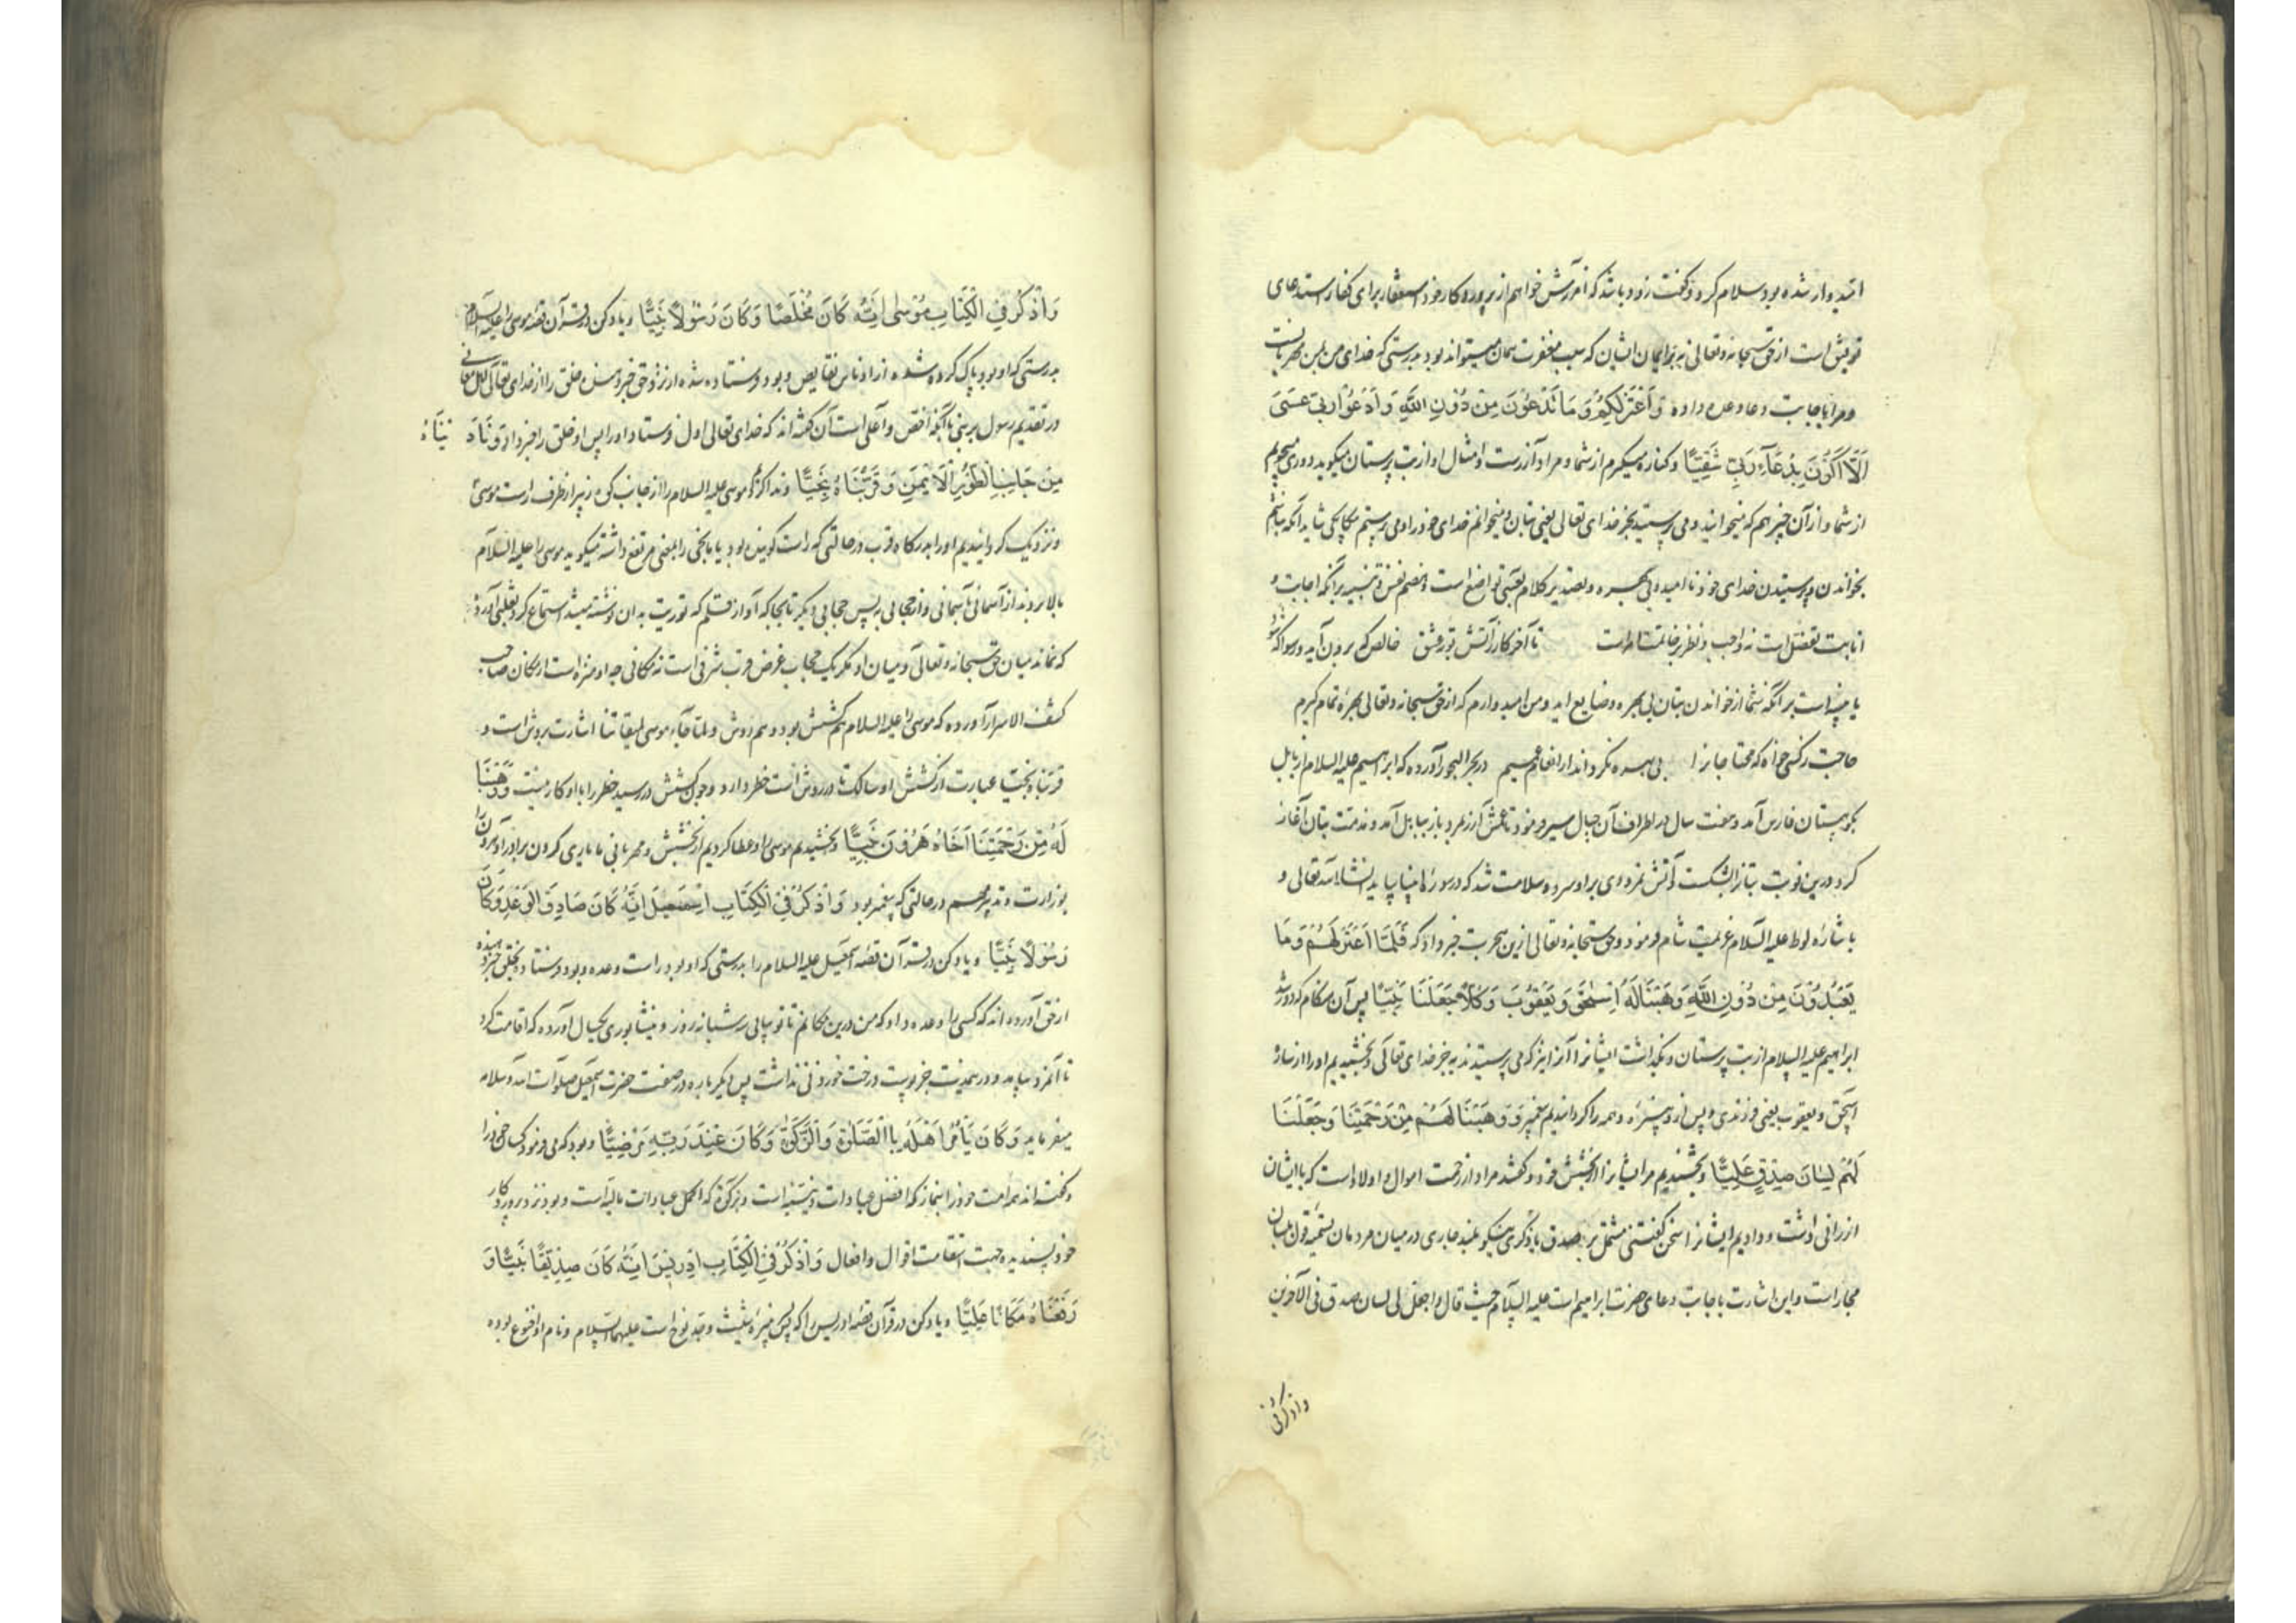 امیدوار شده بود سلام کرد و گفت زود باشد که آمرزش خواهم از پروردکار خود استغفار برای کفار استدعای
توفیق است از حق سبحانه وتعالی نه برایمان ایشان که سبب مغفرت همان میتواند بود بدرستی که خدای من بمن مهربانست
ومرا باجابت دعا وعده داده وَاَعْتَزِلُکُمْ وَمَا تَدْعُونَ مِنْ دُونِ اللَّهِ وَاَدْعُوا رَبِّی عَسَی
اَلَّا اَکُونَ بِدُعَآءِ رَبِّی شَقِیًّا وکناره میکیرم از شما و مراد آزرست و امثال او از بت پرستان میکوید دوری میجویم
از شما و از آن چیز هم که میخوانید و می پرستید بجز خدای تعالی یعنی بتان و میخوانم خدای خود را و می پرستم بیکانکی شاید آنکه نباشم
بخواندن و پرستیدن خدای خود نا امید و بی بهره وتصدیر کلام بعسی تواضع است وهضم نفس و تنبیه بر آنکه اجابت و
اثابت تفضل است نه واجب ونظر بر خاتمت است تا آخر کار ز آتش بوته عشق خالص که برون آید ورسوا که شود
یا مبنی است بر آنکه شما از خواندن بتان بی بهره وضایع اید ومن امید وارم که از حق سبحانه وتعالی بهرهٔ تمام کیرم
حاجت ز کسی خواه که محتاجانرا بی بهره نکرداند از انعام عمیم در بحر البحور آورده که ابراهیم علیه السلام از بابل
بکوهستان فارس آمد و هفت سال در اطراف آن جبال سیر میفرمود تا عمش آزر بمرد باز ببابل آمد و مذمت بتان آغاز
کرد و درین نوبت بتانرا بشکست و آتش نمرودی براو سرد وسلامت شد که در سورهٔ انبیا بیاید انشاء الله تعالی و
باشارهٔ لوط علیه السلام عزیمت شام فرمود وحق سبحانه وتعالی ازین هجرت خبر داد که فَلَمَّا اعْتَزَلَهُمْ وَمَا
یَعْبُدُونَ مِنْ دُونِ اللَّهِ وَهَبْنَا لَهُ اِسْحٰقَ وَیَعْقُوبَ وَکُلًّا جَعَلْنَا نَبِیًّا پس آن هنکام که دور شد
ابراهیم علیه السلام از بت پرستان وبکذاشت ایشانرا و آنرا نیز که می پرستیدند بجز خدای تعالی بخشیدیم او را از ساره
اسحق و یعقوب یعنی فرزندی و پس ازو پسرزاده وهمه را کردانیدیم پیغمبر وَوَهَبْنَا لَهُمْ مِنْ رَحْمَتِنَا وَجَعَلْنَا
لَهُمْ لِسَانَ صِدْقٍ عَلِیًّا وبخشیدیم مر ایشانرا از بخشش خود وکفته‌اند مراد از رحمت اموال و اولادست که با ایشان
ارزانی داشت و دادیم ایشانرا سخن کفتنی مشتمل بر صدق یا ذکری نیکو بلند جاری در میان مردمان تسمیهٔ قول بلسان
مجاز است واین اشارت باجابت دعای حضرت ابراهیم است علیه السلام حیث قال واجعل لی لسان صدق فی الآخرین
واذکر فی
وَاذْکُرْ فِی الْکِتَابِ مُوسٰی اِنَّهُ کَانَ مُخْلَصًا وَکَانَ رَسُولًا نَبِیًّا ویاد کن در قرآن قصهٔ موسی را علیه السلام
بدرستی که او بود پاک کرده شده از ادناس نقایص و بود فرستاده شده از نزد حق خبر دهنده خلق را از خدای تعالی
در تقدیم رسول بر نبی با آنکه اخص و اعلی است آن کفته‌اند که خدای تعالی اول فرستاد او را پس او خلق را خبر داد وَنَادَ یْنَاهُ
مِنْ جَانِبِ الطُّورِ الْاَیْمَنِ وَقَرَّبْنَاهُ نَجِیًّا و ندا کردیم موسی علیه السلام را از جانب کوه زبیر از طرف راست موسی
ونزدیک کردانیدیم او را بدرکاه قرب در حالتی که راست کوینده بود یا نجی را بمعنی مرتفع داشته میکوید موسی را علیه السلام
بالا بردند از آسمانی بآسمانی و از حجابی به پس حجابی دیکر تا بجائی که آواز قلم که توریت بدان نوشته میشد استماع کرد ثعلبی آورده
که نماند میان حق سبحانه وتعالی و میان او مکر یک حجاب غرض قرب شرفی است نه مکانی چه او منزه است از مکان صاحب
کشف الاسرار آورده که موسی را علیه السلام هم کشش بود وهم روش ولما جآء موسی لمیقاتنا اشارت بروش است و
قربناه نجیا عبارت از کشش او سالک تا در روش است خطر دارد وچون کشش در رسید خطر را با او کار نیست وَوَهَبْنَا
لَهُ مِنْ رَحْمَتِنَا اَخَاهُ هٰرُونَ نَبِیًّا وبخشیدیم موسی را و عطا کردیم از بخشش ومهربانی ما یاری کردن برادر او هرون را
بوزارت و تدبیر مهم در حالتی که پیغمبر بود وَاذْکُرْ فِی الْکِتَابِ اِسْمٰعِیلَ اِنَّهُ کَانَ صَادِقَ الْوَعْدِ وَکَانَ
رَسُولًا نَبِیًّا ویاد کن در قرآن قصهٔ اسمعیل علیه السلام را بدرستی که او بود راست وعده و بود فرستاده بخلق خبر دهنده
از حق آورده‌اند که کسی را وعده داد که من درین مکانم تا تو بیایی سه شبانه روز و نیشابوری یکسال آورده که اقامت کرد
تا آنمرد بیامد و درین مدت جز پوست درخت خوردنی نداشت پس دیکر باره در صفت حضرت اسمعیل صلوات الله وسلامه
میفرماید وَکَانَ یَأْمُرُ اَهْلَهُ بِالصَّلٰوةِ وَالزَّکٰوةِ وَکَانَ عِنْدَ رَبِّهِ مَرْضِیًّا و بود که می فرمود کسان خود را
وکفته‌اند همه امت خود را بنماز که افضل عبادات بدنیه است و بزکوة که اکمل عبادات مالیه است و بود نزد پروردکار
خود پسندیده بجهت استقامت اقوال و افعال وَاذْکُرْ فِی الْکِتَابِ اِدْرِیسَ اِنَّهُ کَانَ صِدِّیقًا نَبِیًّا وَ
رَفَعْنَاهُ مَکَانًا عَلِیًّا ویاد کن در قرآن قصهٔ ادریس را که پسر نبیرهٔ شیث وجد نوح است علیهما السلام ونام او اخنوخ بوده